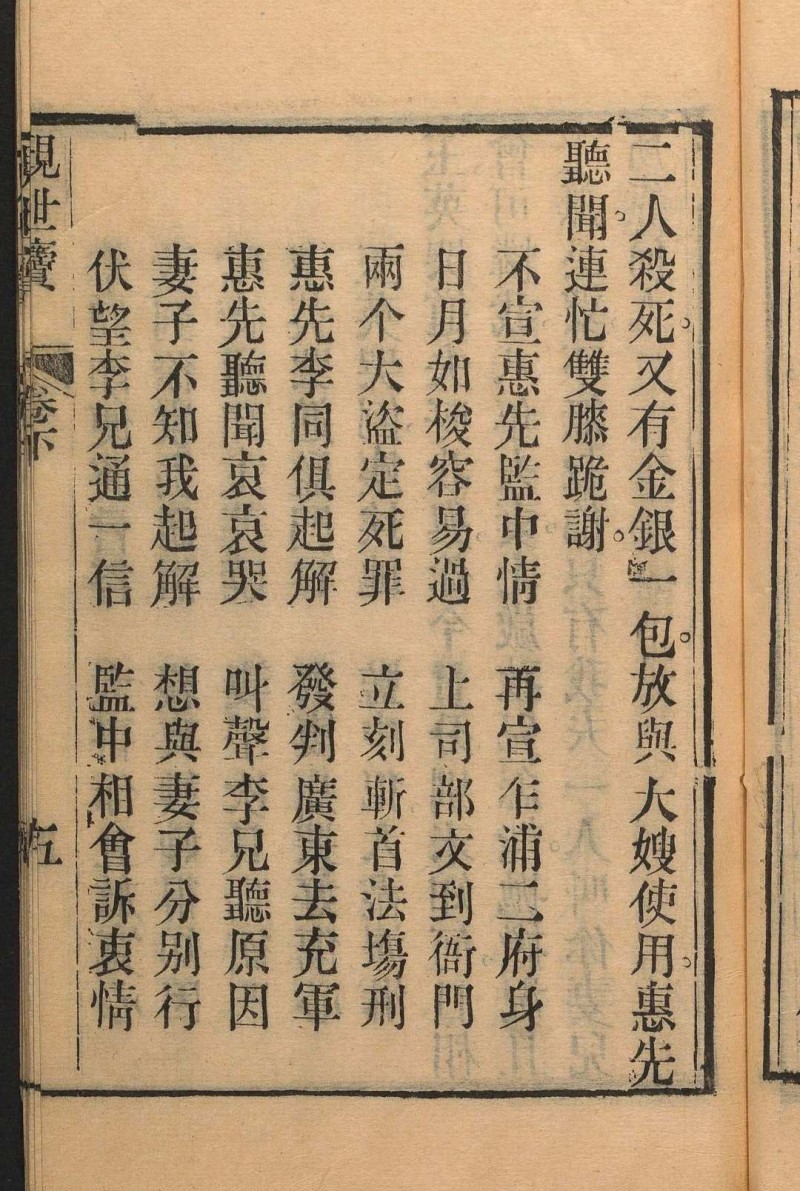 二人殺死。又有金銀一包。放與大嫂使用。惠先
聽聞。連忙雙膝跪謝。
不宣惠先監中情　再宣乍浦二府身
日月如梭容易過　上司部文到衙門
兩个大盜定死罪　立刻斬首法塲刑
惠先李同俱起解　發判廣東去充軍
惠先聽聞哀哀哭　叫聲李兄聽原因
妻子不知我起解　想與妻子分别行
伏望李兄通一信　監中相會訴衷情
現世寶　卷下　五